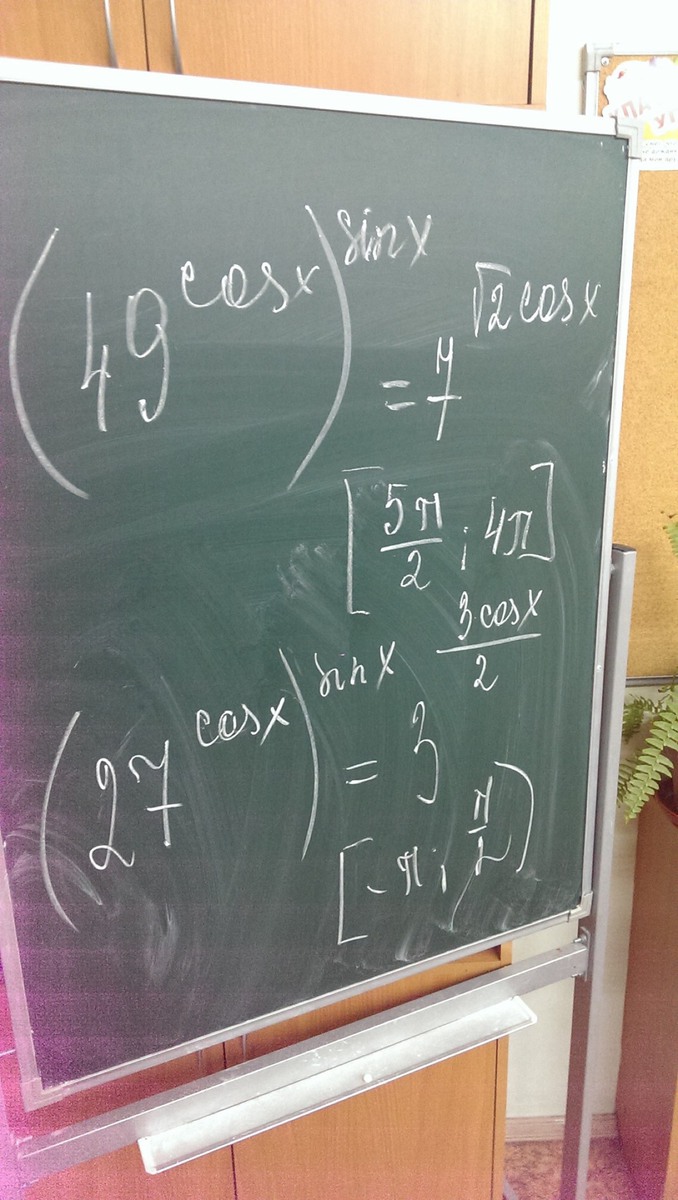 (49^cosx)^sinx = 7^√2cosx
[5π/2; 4π]
(27^cosx)^sinx = 3^3cosx/2
[-π; π/2)